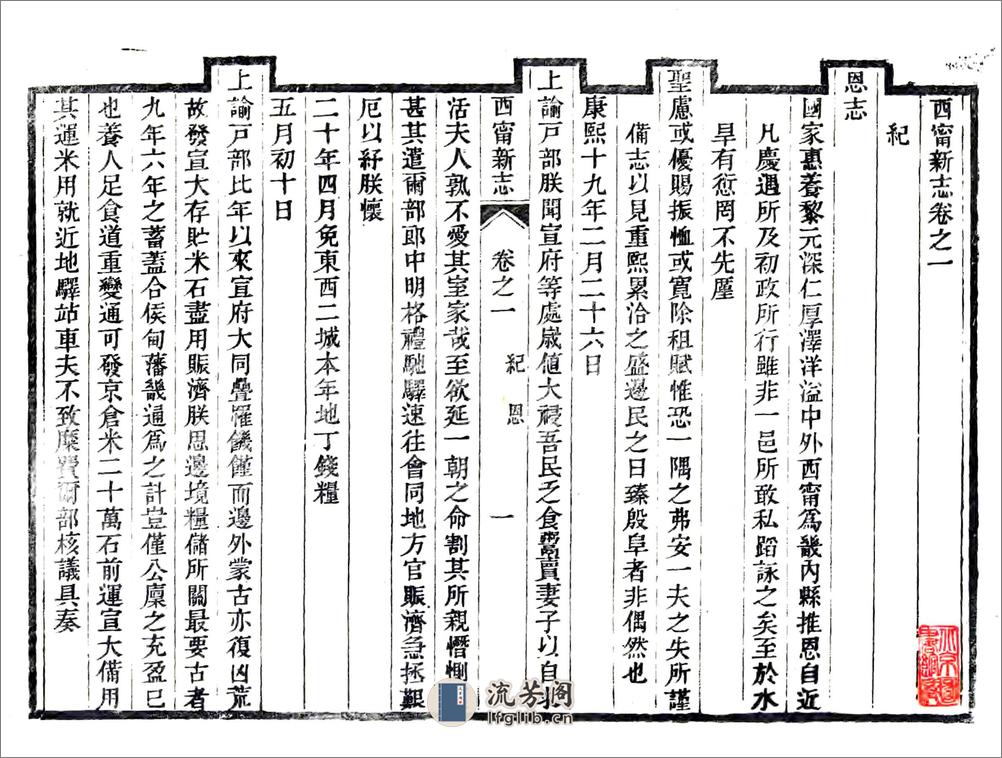 西甯新志卷之一
紀
恩志
國家惠養黎元深仁厚澤洋溢中外西甯爲畿內縣推恩自近
凡慶遇所及初政所行雖非一邑所敢私蹈詠之矣至於水
旱有愆罔不先厪
聖慮或優賜振恤或寬除租賦惟恐一隅之弗安一夫之失所謹
備志以見重熙累洽之盛邊民之日臻殷阜者非偶然也
康熙十九年二月二十六日
上諭戸部朕聞宣府等處歲値大祲吾民乏食鬻賣妻子以自求
西甯新志
卷之一
紀恩
一
活夫人孰不愛其室家哉至欲延一朝之命割其所親憯惻
甚其遣爾部郎中明格禮馳驛速往會同地方官賑濟急拯艱
厄以紓朕懷
二十年四月免東西二城本年地丁錢糧
五月初十日
上諭戸部比年以來宣府大同疊罹饑饉而邊外蒙古亦復凶荒
故發宣大存貯米石盡用賑濟朕思邊境糧儲所關最要古者
九年六年之蓄蓋合侯甸藩畿通爲之計豈僅公廩之充盈已
也養人足食道重變通可發京倉米二十萬石前運宣大備用
其運米用就近地驛站車夫不致糜費爾部核議具奏
流芳阁
lfglib.cn